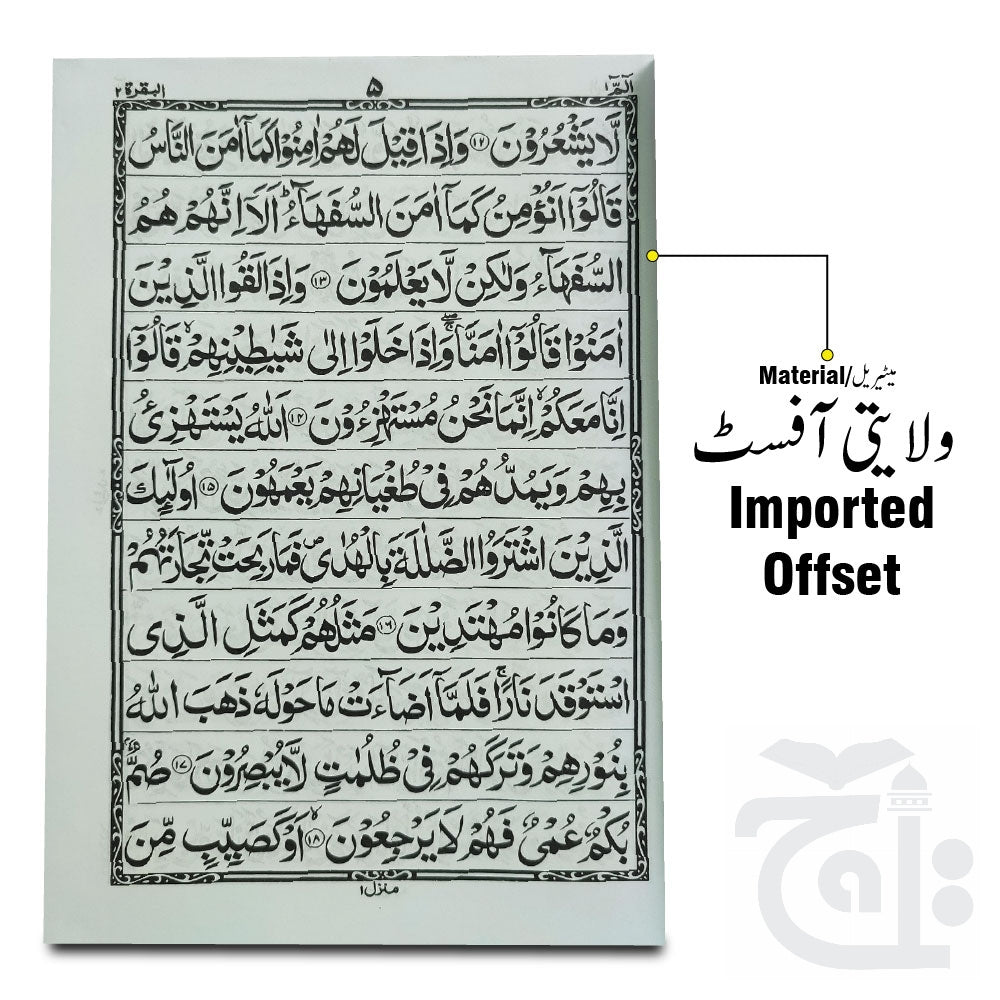 الٓمّٓ ١ ۵ البقرة ٢
لَّا يَشْعُرُوْنَ ۝۱۲ وَاِذَا قِيْلَ لَهُمْ اٰمِنُوْا كَمَاۤ اٰمَنَ النَّاسُ
قَالُوْۤا اَنُؤْمِنُ كَمَاۤ اٰمَنَ السُّفَهَآءُ ؕ اَلَاۤ اِنَّهُمْ هُمُ
السُّفَهَآءُ وَلٰكِنْ لَّا يَعْلَمُوْنَ ۝۱۳ وَاِذَا لَقُوا الَّذِيْنَ
اٰمَنُوْا قَالُوْۤا اٰمَنَّا ۖۚ وَاِذَا خَلَوْا اِلٰى شَيٰطِيْنِهِمْ ۙ قَالُوْۤا
اِنَّا مَعَكُمْ ۙ اِنَّمَا نَحْنُ مُسْتَهْزِءُوْنَ ۝۱۴ اَللّٰهُ يَسْتَهْزِئُ
بِهِمْ وَيَمُدُّهُمْ فِىْ طُغْيَانِهِمْ يَعْمَهُوْنَ ۝۱۵ اُولٰٓئِكَ
الَّذِيْنَ اشْتَرَوُا الضَّلٰلَةَ بِالْهُدٰى ۪ فَمَا رَبِحَتْ تِّجَارَتُهُمْ
وَمَا كَانُوْا مُهْتَدِيْنَ ۝۱۶ مَثَلُهُمْ كَمَثَلِ الَّذِى
اسْتَوْقَدَ نَارًا ۚ فَلَمَّاۤ اَضَآءَتْ مَا حَوْلَهٗ ذَهَبَ اللّٰهُ
بِنُوْرِهِمْ وَتَرَكَهُمْ فِىْ ظُلُمٰتٍ لَّا يُبْصِرُوْنَ ۝۱۷ صُمٌّۢ
بُكْمٌ عُمْىٌ فَهُمْ لَا يَرْجِعُوْنَ ۙ ۝۱۸ اَوْ كَصَيِّبٍ مِّنَ
منزل ١
Material/میٹیریل
ولایتی آفسٹ
Imported
Offset
تاج